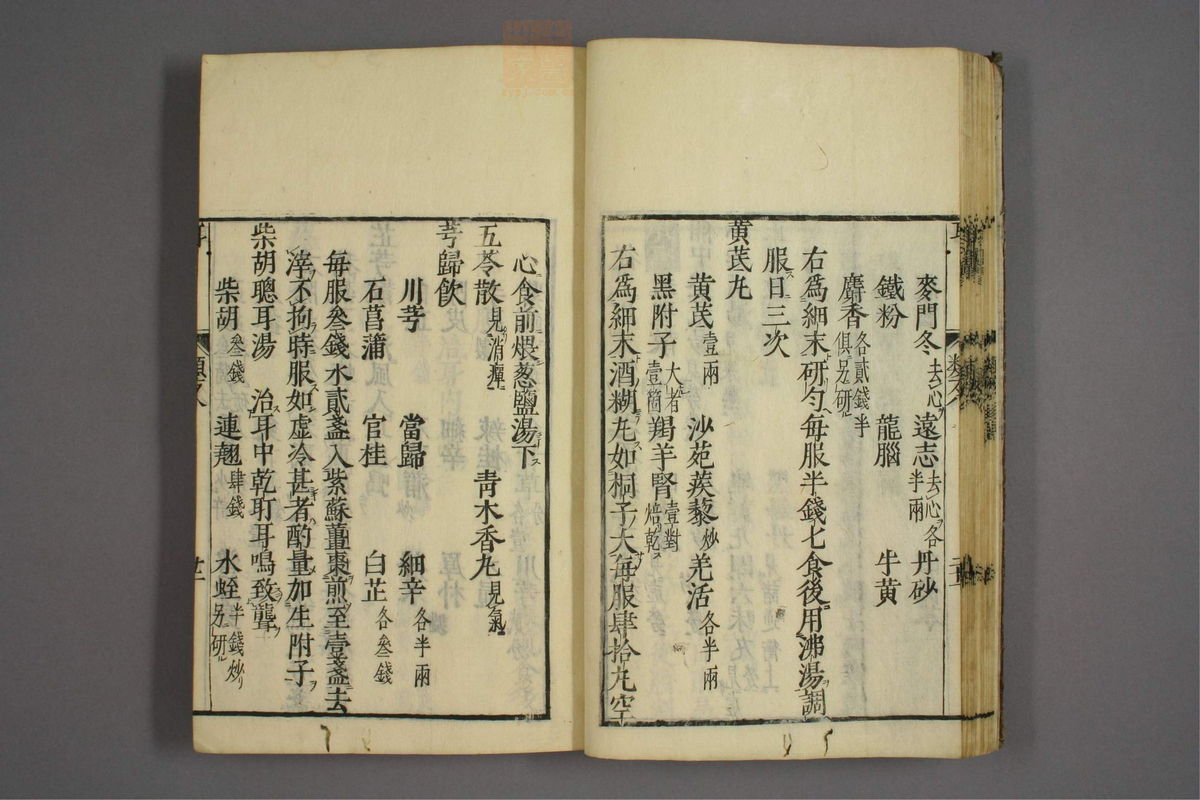 麥門冬去心遠志去心各半兩丹砂
鐵粉 龍腦 牛黃
麝香各貳錢半俱另研
右爲細末研勻每服半錢匕食後用沸湯調
服日三次
黃芪丸
黃芪壹兩 沙苑蒺藜炒 羌活各半兩
黑附子大者壹箇 羯羊腎壹對焙乾
右爲細末酒糊丸如桐子大每服肆拾丸空
心食前煨葱鹽湯下
五苓散見消癉 青木香丸見氣
芎歸飲
川芎 當歸 細辛各半兩
石菖蒲 官桂 白芷各叄錢
每服叄錢水貳盞入紫蘇薑棗煎至壹盞去
滓不拘時服如虛冷甚者酌量加生附子
柴胡聰耳湯 治耳中乾耵耳鳴致聾
柴胡叄錢 連翹肆錢 水蛭半錢炒另研